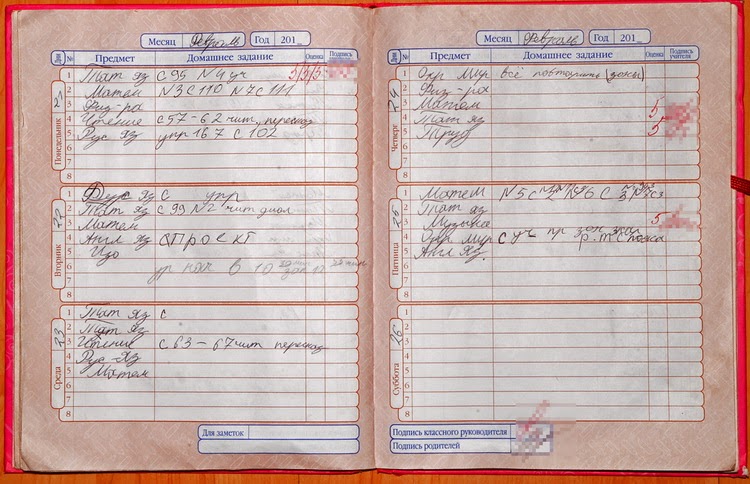 Месяц Февраль Год 201_
Дни № Предмет Домашнее задание Оценка Подпись учителя
Понедельник 21
1 Тат яз с 95 N4 уч 5/5/5
2 Матем N3 с 110 N7 с 111
3 Физ-ра
4 Чтение с 57-62 чит., пересказ
5 Рус яз упр 167 с 102
6
7
8
Вторник 22
1 Рус яз с упр
2 Тат яз с 99 N2 чит диал
3 Матем
4 Англ яз проект
5 Изо
6 ур нач в 10
7
8
Среда 23
1 Тат яз с
2 Тат яз
3 Чтение с 63-67 чит пересказ
4 Рус-яз
5 Матем
6
7
8
Для заметок
Месяц Февраль Год 201_
Дни № Предмет Домашнее задание Оценка Подпись учителя
Четверг 24
1 Окр Мир всё повторить
2 Физ-ра
3 Матем
4 Тат яз 5
5 Труд 5
6
7
8
Пятница 25
1 Матем N5 с
2 Тат яз
3 Музыка 5
4 Окр мир с уч пр
5 Англ яз.
6
7
8
Суббота 26
1
2
3
4
5
6
7
8
Подпись классного руководителя
Подпись родителей